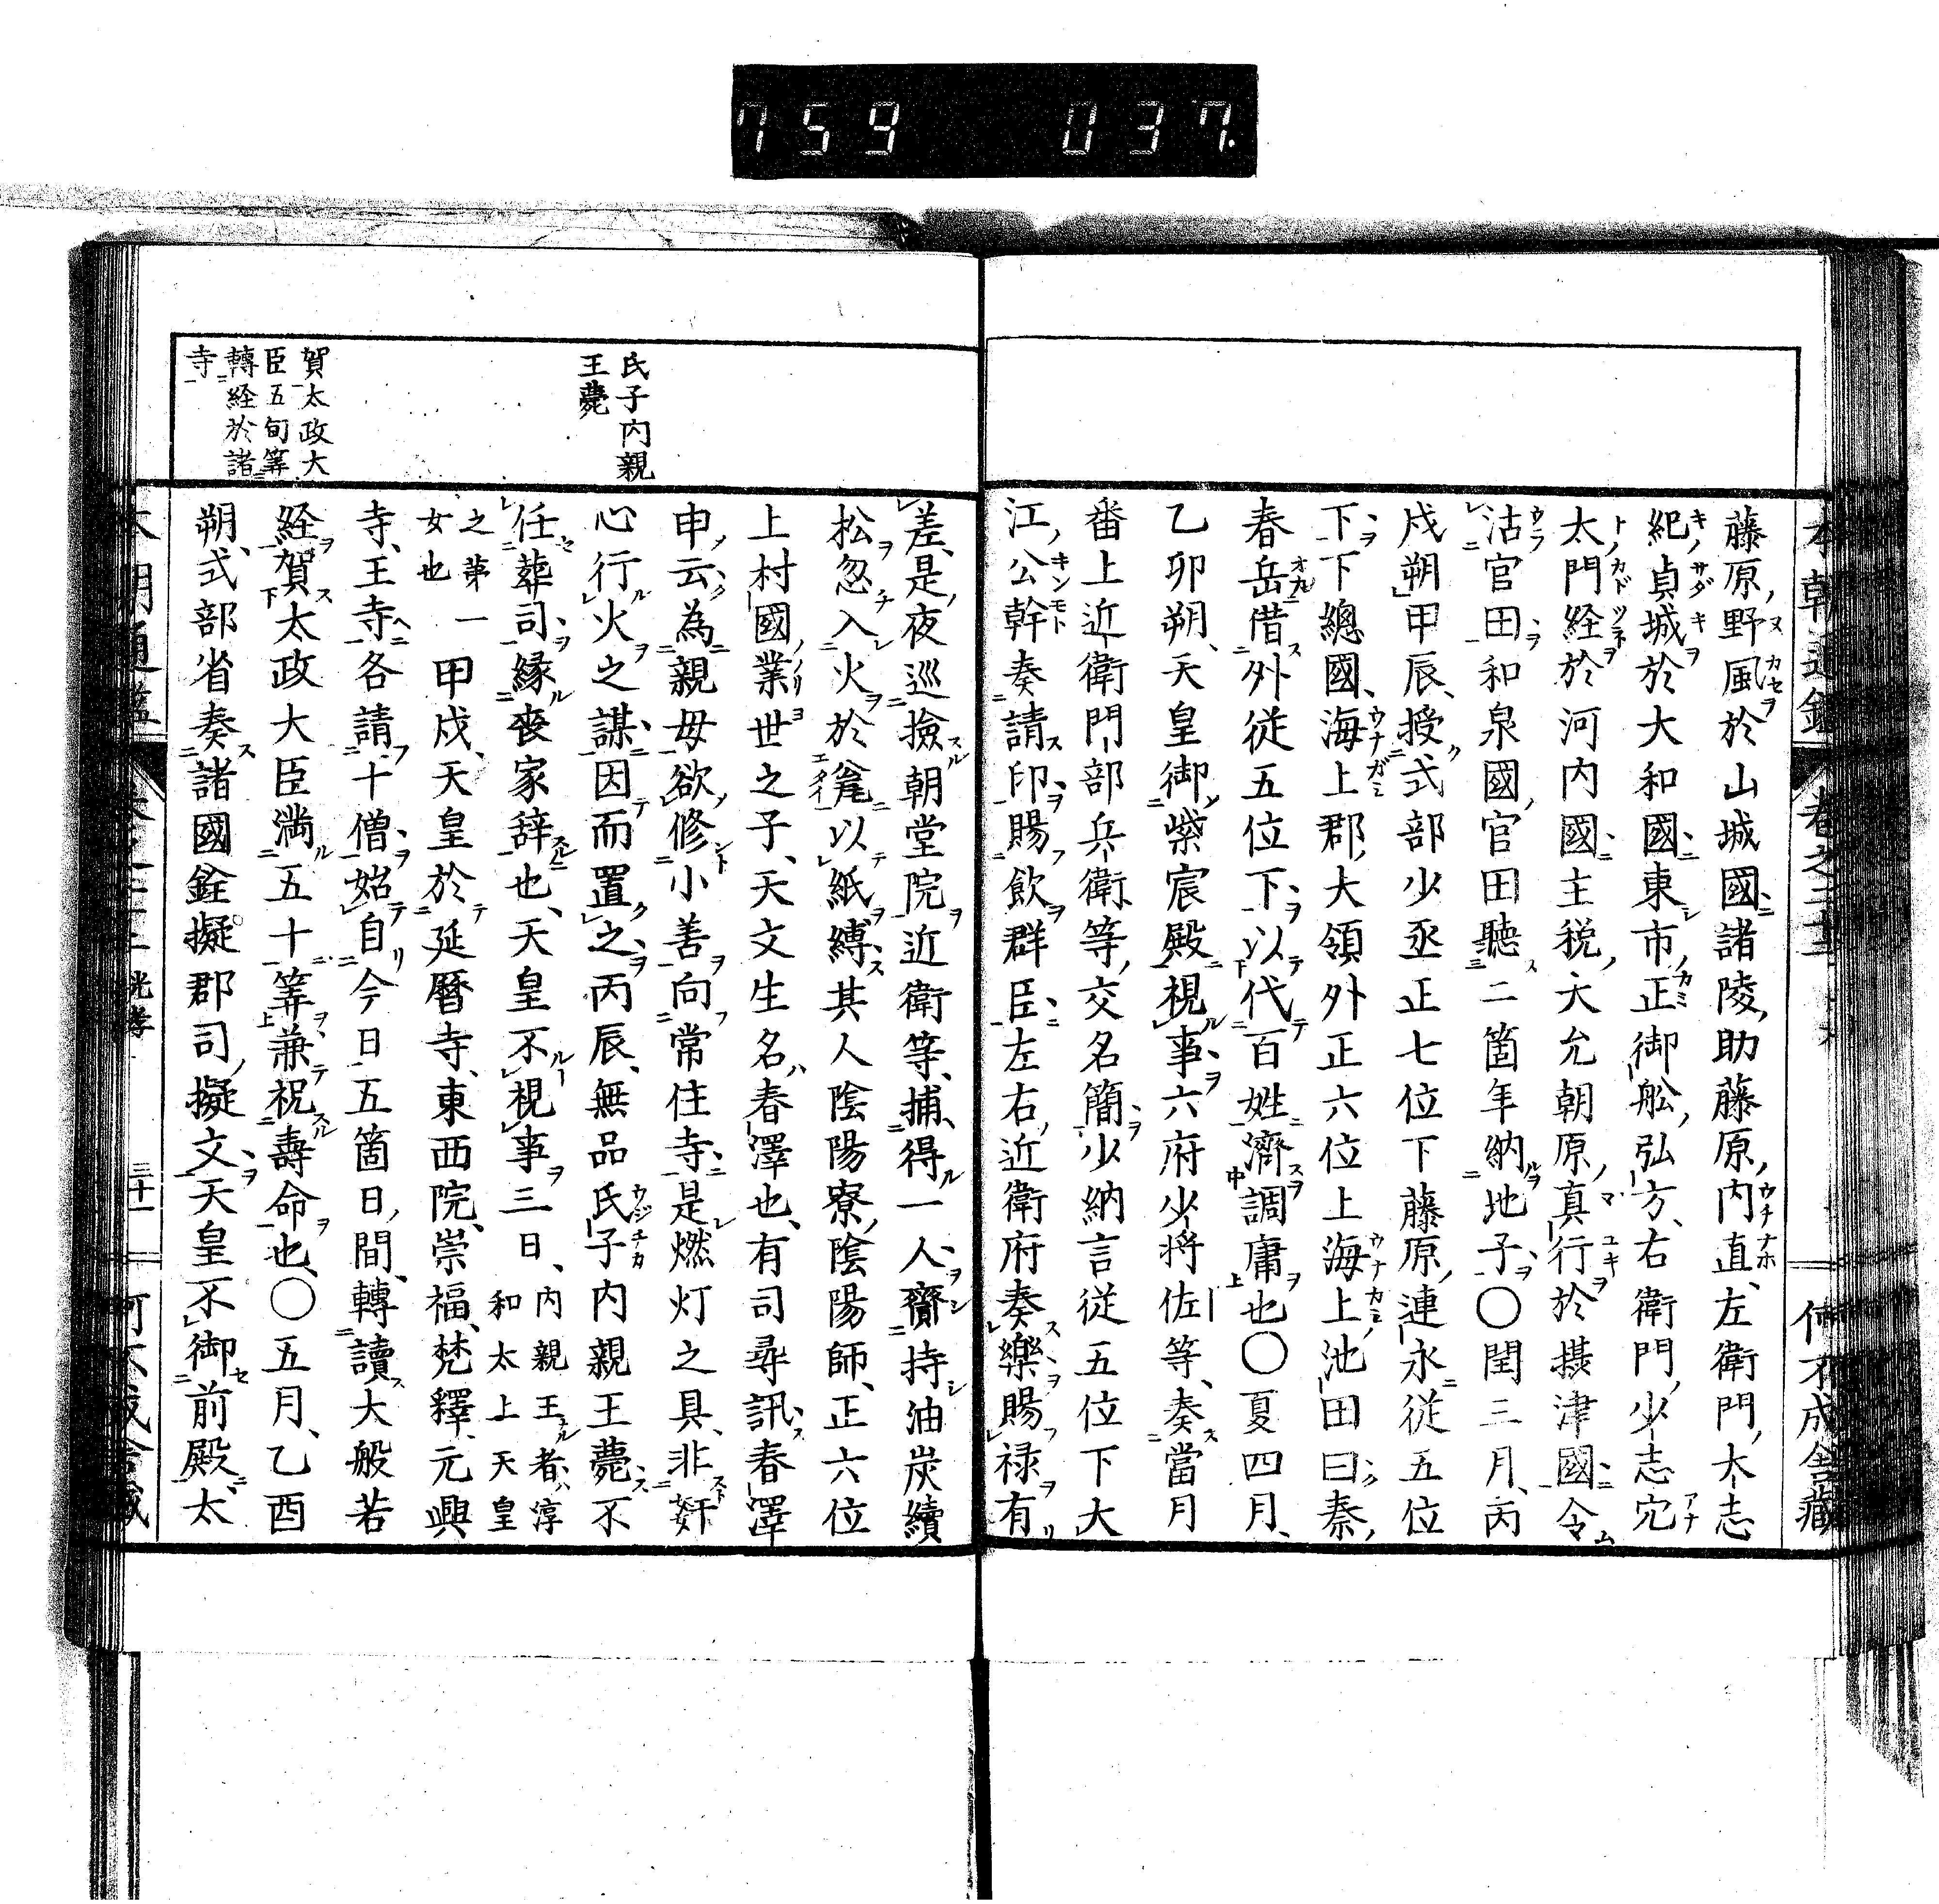 759 037.
藤原野風於山城國諸陵助藤原内直左衛門大志
紀貞城於大和國東市正御舩弘方右衛門少志宍
太門経於河内國主税大允朝原真行於摂津國令
沽官田和泉國官田聽二箇年納地子〇閏三月丙
戌朔甲辰授式部少丞正七位下藤原連永従五位
下下總國海上郡大領外正六位上海上池田曰秦
春岳借外従五位下以代百姓濟調庸也〇夏四月
乙卯朔天皇御紫宸殿視事六府少将佐等奏當月
番上近衛門部兵衛等交名簡少納言従五位下大
江公幹奏請印賜飲群臣左右近衛府奏樂賜禄有
氏子内親
王薨
賀太政大
臣五旬筭
轉経於諸
寺
差是夜巡撿朝堂院近衛等捕得一人齎持油炭續
松忽入火於篭以紙縛其人陰陽寮陰陽師正六位
上村國業世之子天文生名春澤也有司尋訊春澤
申云為親母欲修小善向常住寺是燃灯之具非姧
心行火之謀因而置之丙辰無品氏子内親王薨不
任葬司縁喪家辞也天皇不視事三日内親王者淳
和太上天皇
之第一
女也甲戌天皇於延暦寺東西院崇福梵釋元興
寺王寺各請十僧始自今日五箇日間轉讀大般若
経賀太政大臣満五十筭兼祝壽命也〇五月乙酉
朔式部省奏諸國銓擬郡司擬文天皇不御前殿太